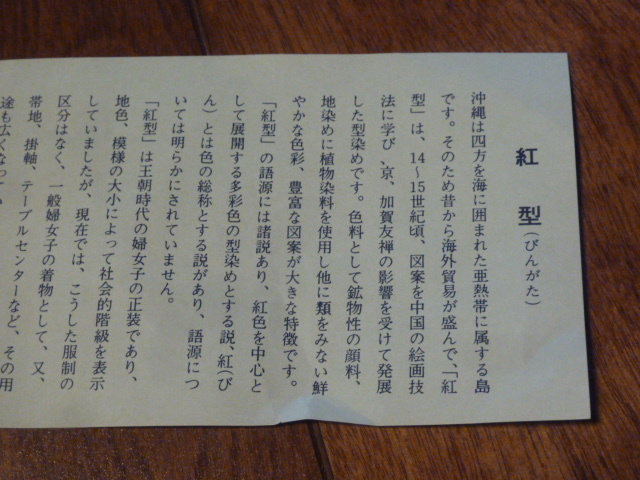 紅型(びんがた)
沖縄は四方を海に囲まれた亜熱帯に属する島
です。そのため昔から海外貿易が盛んで、「紅
型」は、14〜15世紀頃、図案を中国の絵画技
法に学び、京、加賀友禅の影響を受けて発展
した型染めです。色料として鉱物性の顔料、
地染めに植物染料を使用し他に類をみない鮮
やかな色彩、豊富な図案が大きな特徴です。
「紅型」の語源には諸説あり、紅色を中心と
して展開する多彩色の型染めとする説、紅(び
ん)とは色の総称とする説があり、語源につ
いては明らかにされていません。
「紅型」は王朝時代の婦女子の正装であり、
地色、模様の大小によって社会的階級を表示
していましたが、現在では、こうした服制の
区分はなく、一般婦女子の着物として、又、
帯地、掛軸、テーブルセンターなど、その用
途も広くなってい